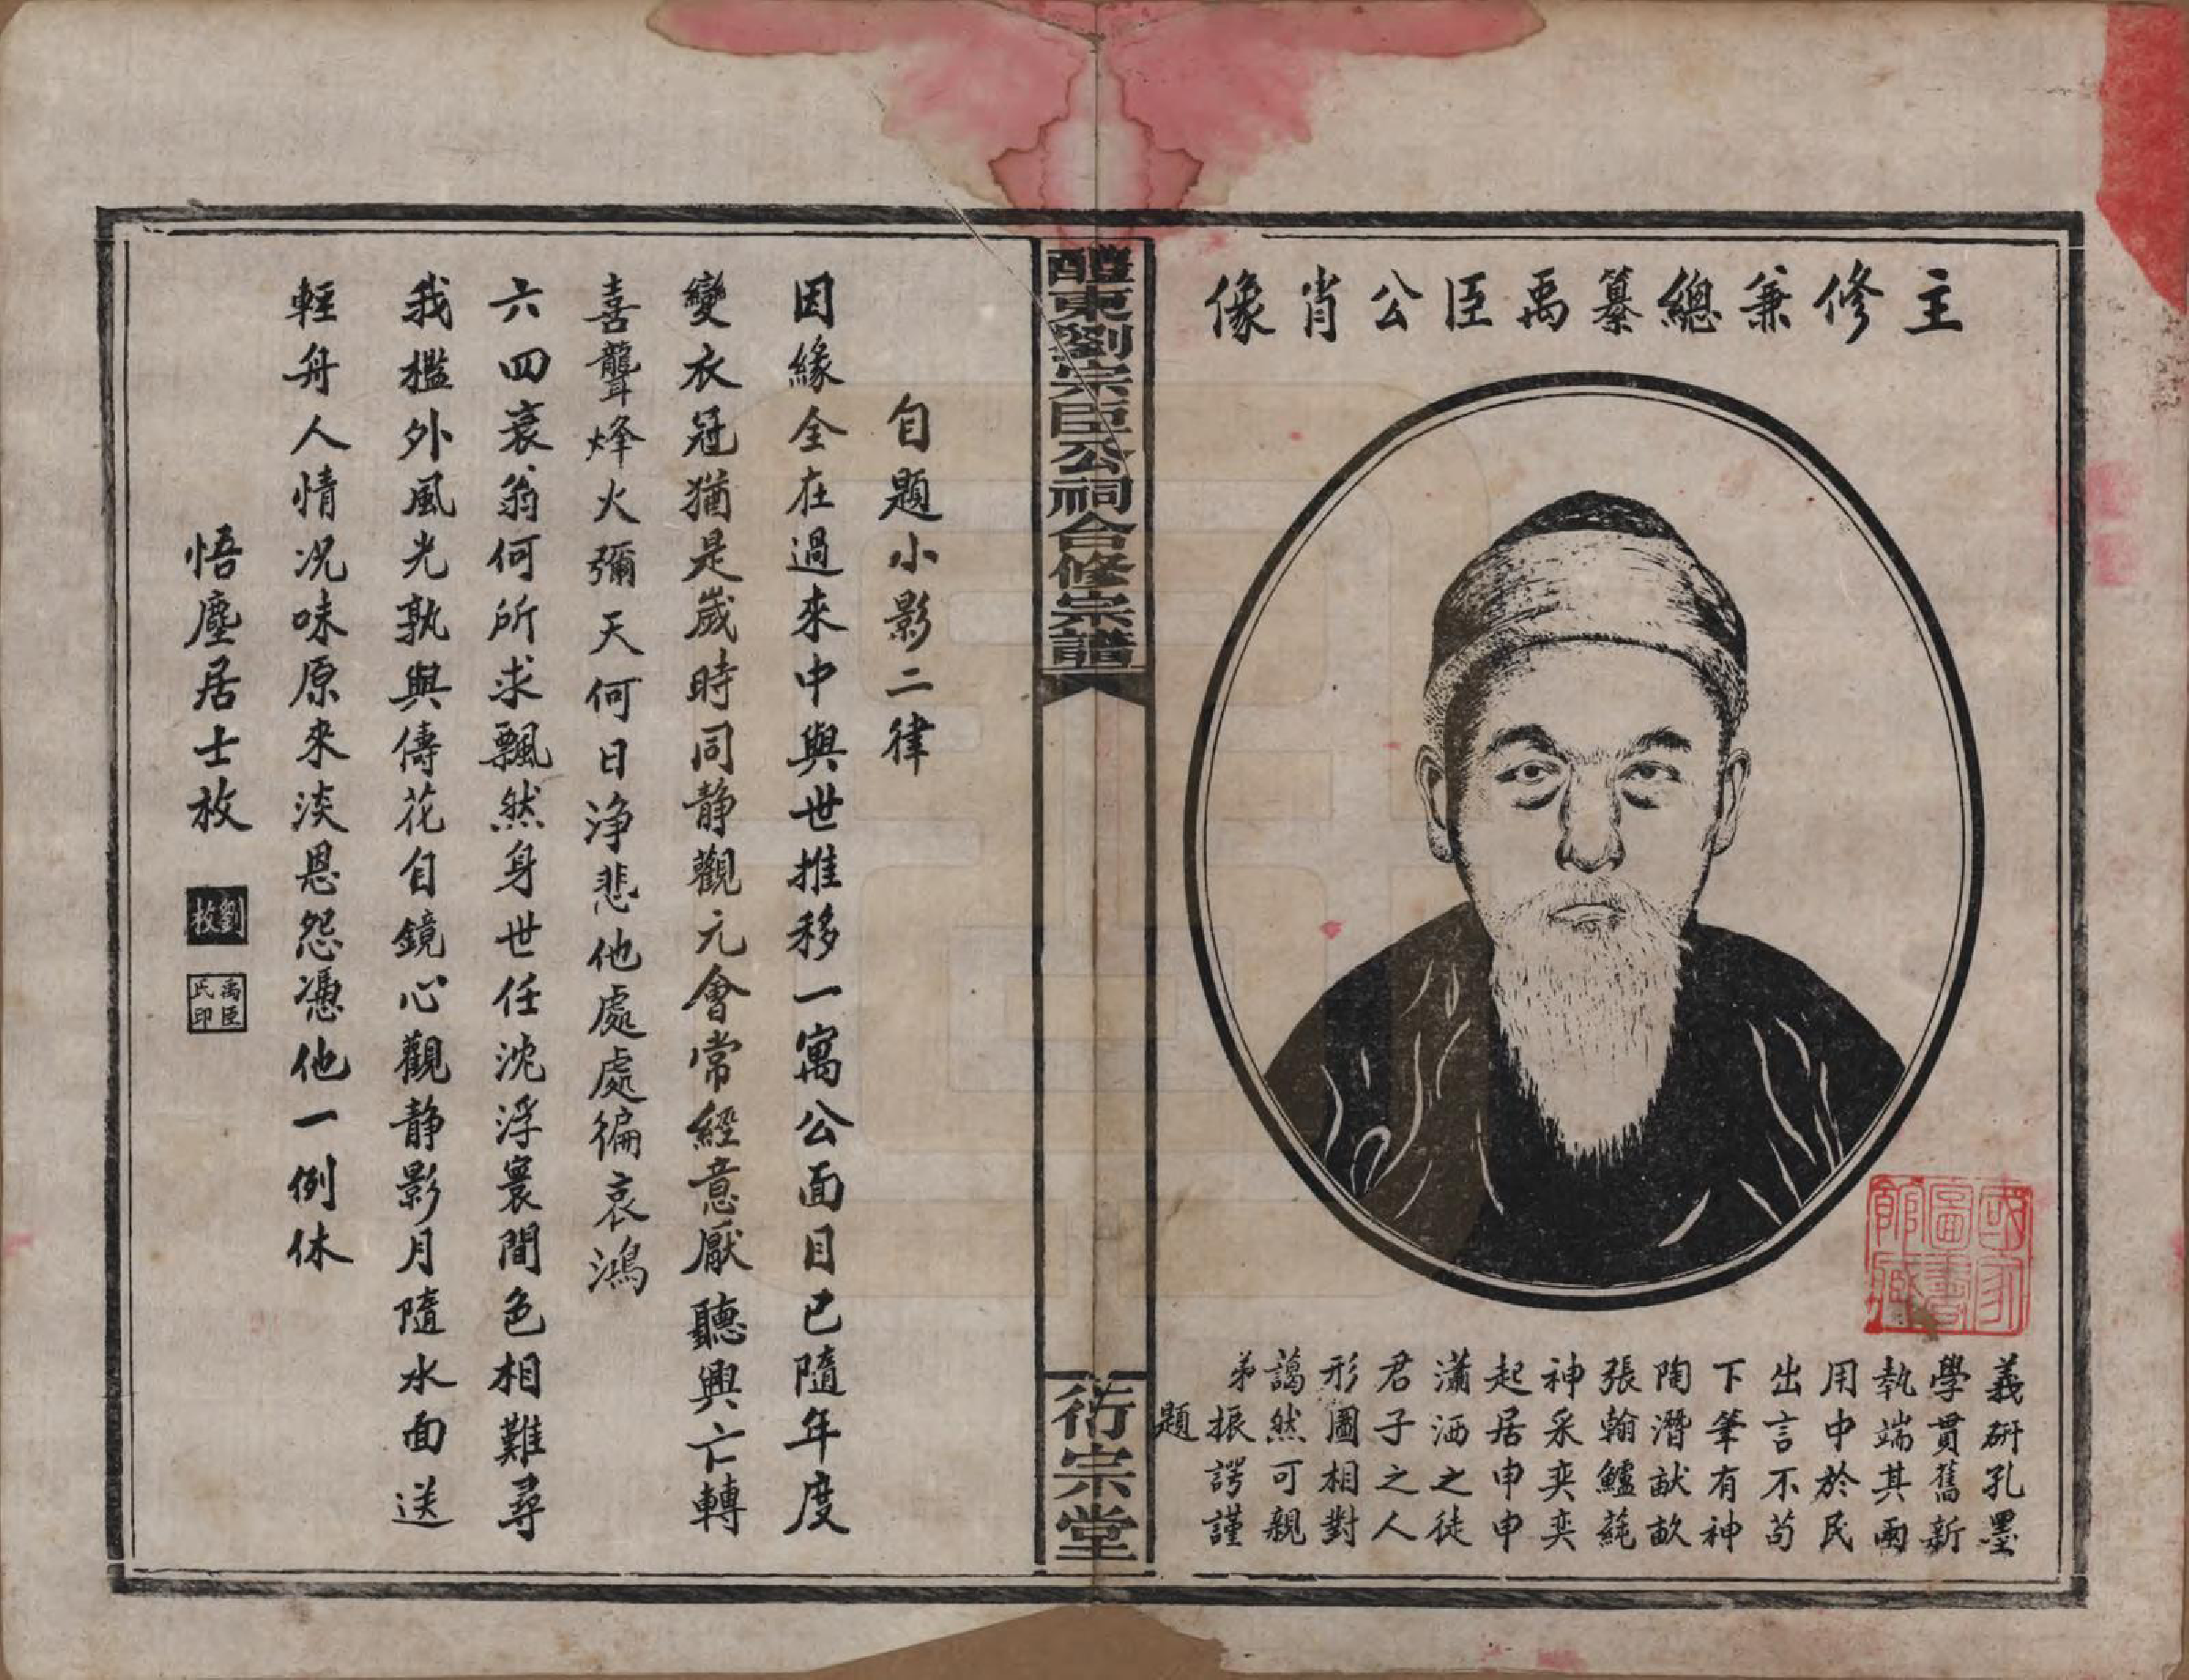 主修兼總纂禹臣公肖像
義研孔墨
學貫舊新
執端其兩
用中於民
出言不苟
下筆有神
陶潛猷畝
張翰鱸蓴
神采奕奕
起居申申
瀟洒之徒
君子之人
形圖相對
藹然可親
弟振諤謹
題
國家圖書館藏
醴東劉宗臣公祠合修宗譜
衍宗堂
自題小影二律
因緣全在過來中與世推移一寓公面目已隨年度
變衣冠猶是歲時同静觀元會常經意厭聽興亡轉
喜聾烽火彌天何日净悲他處處徧哀鴻
六四衰翁何所求飄然身世任沈浮寰間色相難尋
我檻外風光孰與儔花自鏡心觀静影月隨水面送
輕舟人情况味原來淡恩怨憑他一例休
悟塵居士枚
劉枚
禹臣氏印